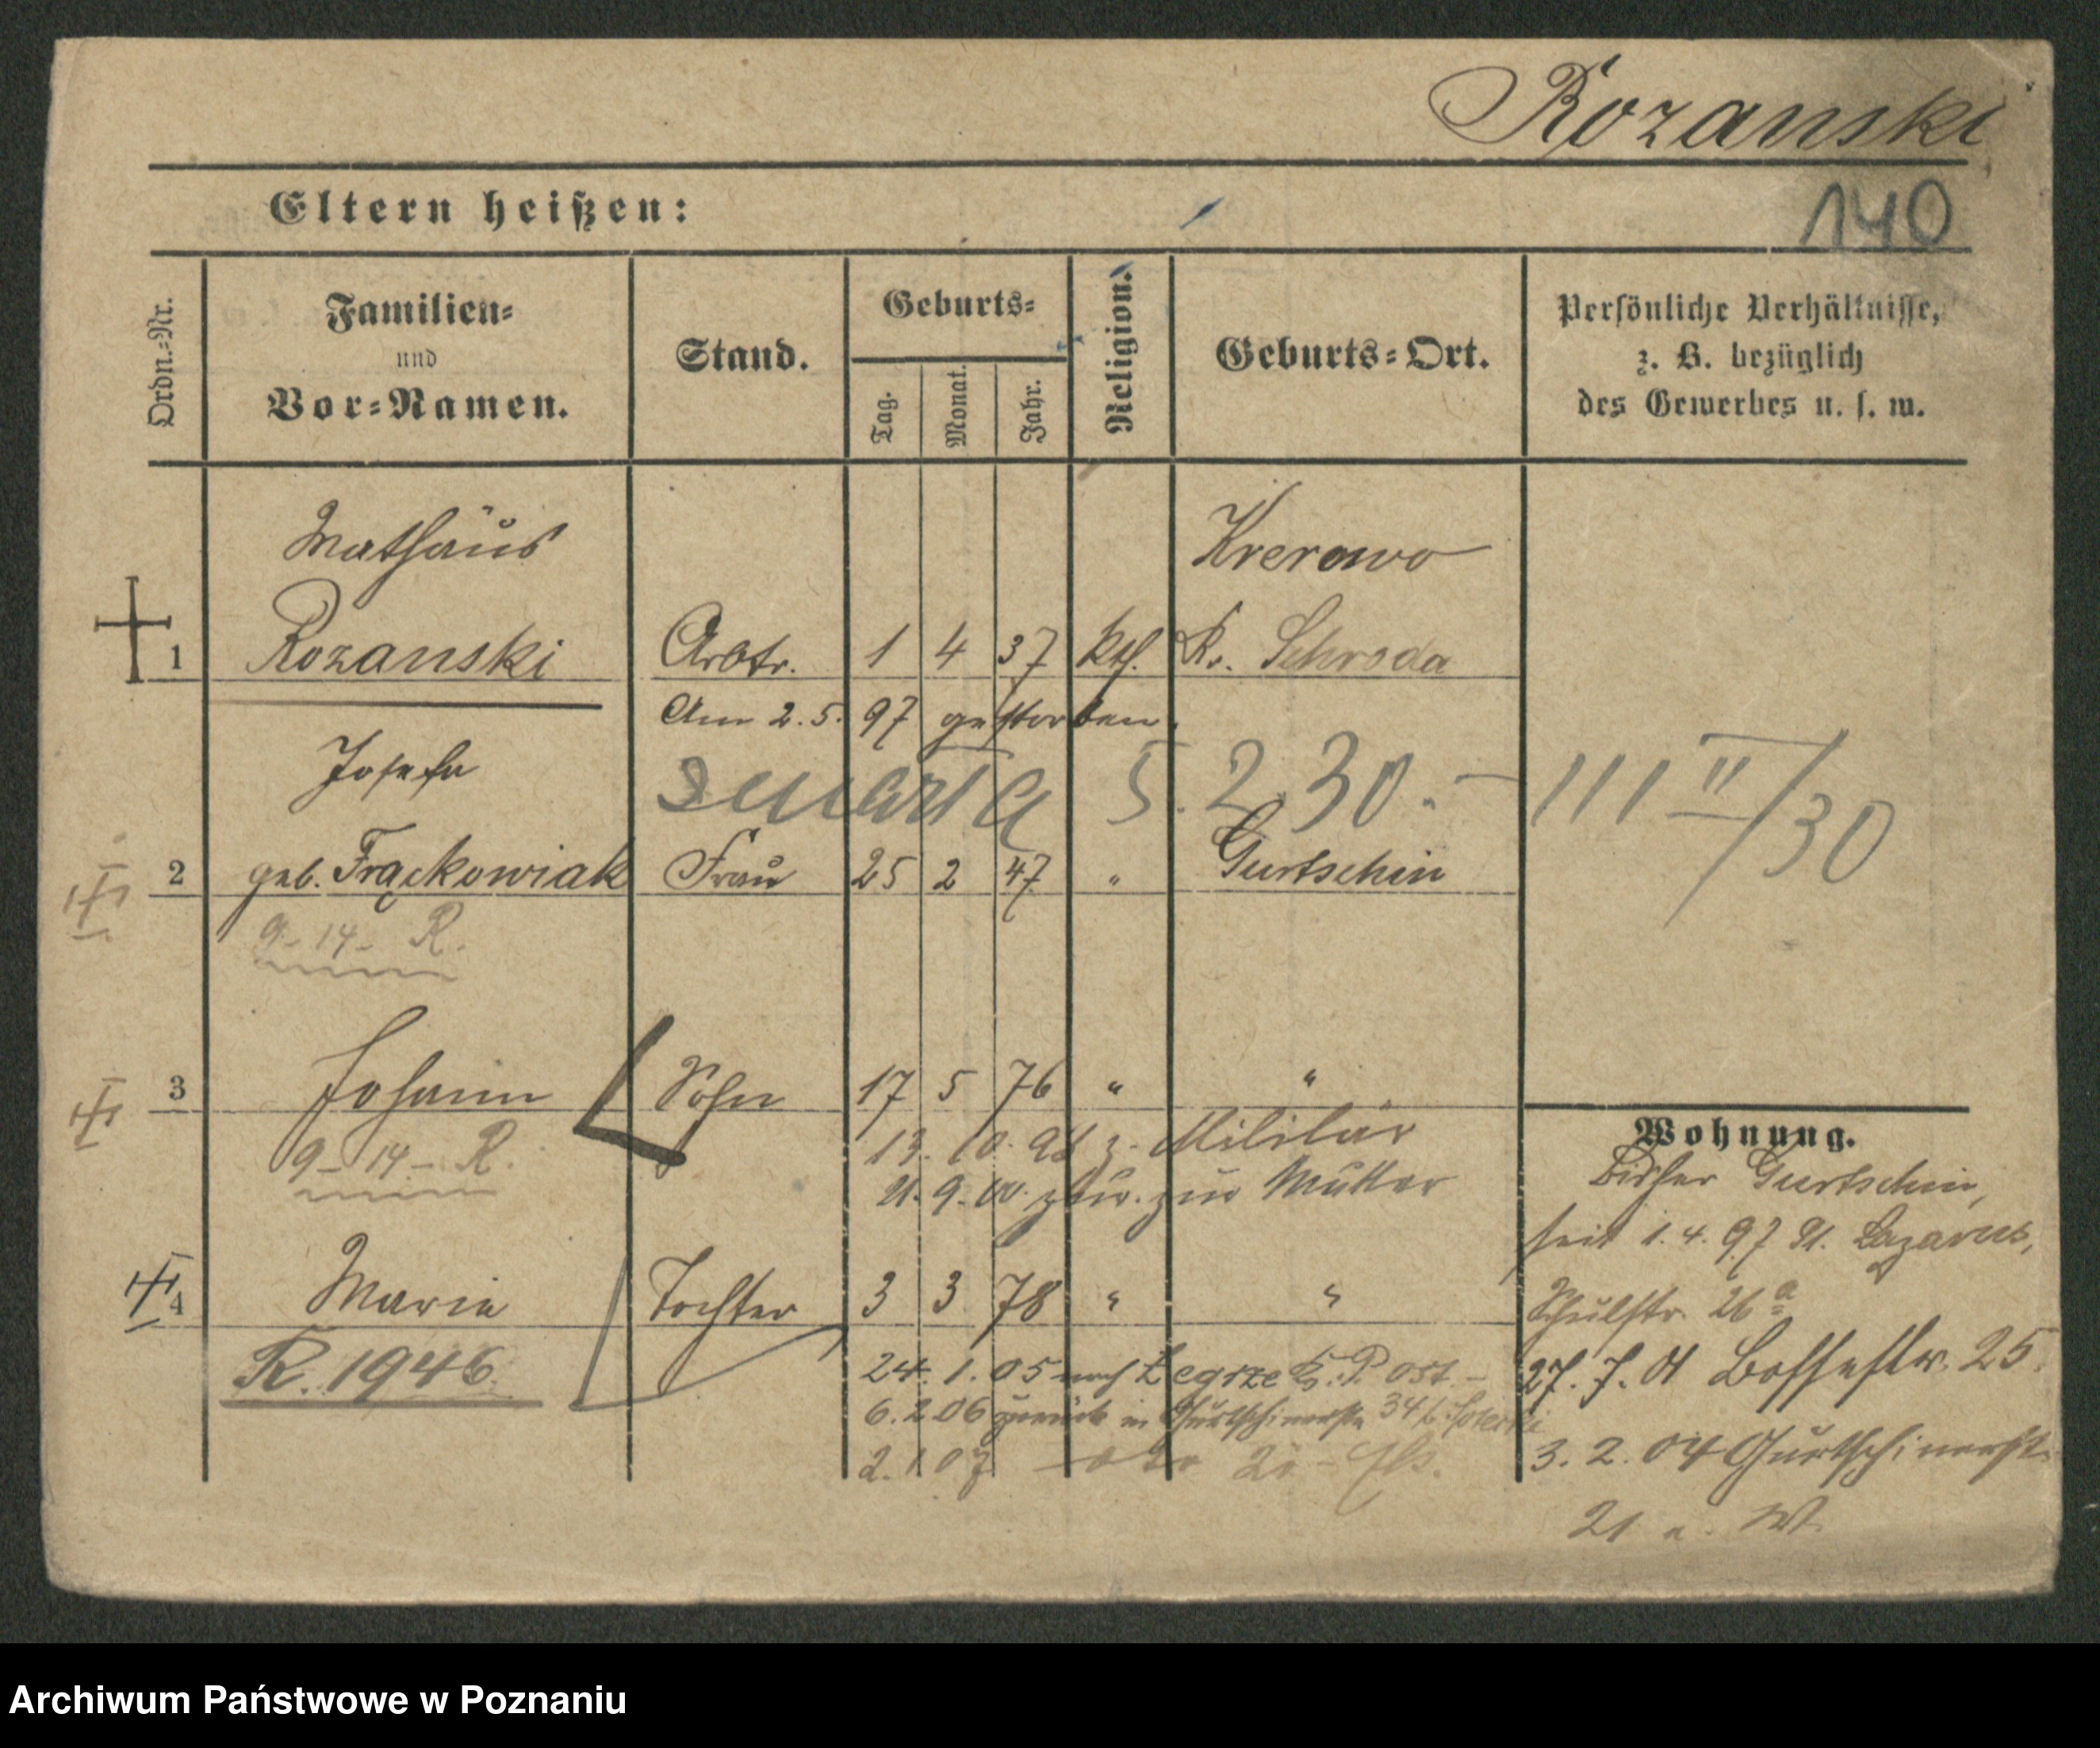 Rozanski
140
Eltern heißen:
Ordn.-Nr.
Familien-
und
Vor-Namen.
Stand.
Geburts-
Tag.
Monat.
Jahr.
Religion.
Geburts-Ort.
Persönliche Verhältnisse,
z. B. bezüglich
des Gewerbes u. s. w.
Mathäus Krerowo
1 Rozanski Arbtr. 1 4 37 kth. Kr. Schroda
Am 2.5. 97 gestorben.
Josefa
zmarła 5.2.30.- 111 II/30
2 geb. Frąckowiak Frau 25 2 47 " Gurtschin
9-14- R.
3 Johann Sohn 17 5 76 " "
9-14- R.
13. 10. z. Militär
9. zur Mutter
4 Marie Tochter 3 3 78 " "
R. 1946.
24. 1. 05 nach Żegrze Kr. P. Ost.-
6.2.06 zurück in Gurtschinerstr 34 b.
2.1 07
Wohnung.
Bisher Gurtschin,
seit 1.4.97 St. Lazarus,
Schulstr. 26a
27.7.01 Bossestr. 25.
3.2.04 Gurtschinerstr
21 a. W.
Archiwum Państwowe w Poznaniu